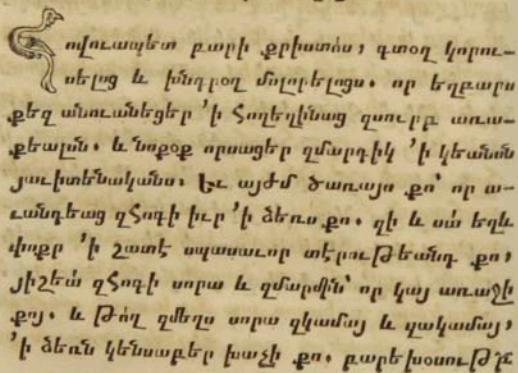 Հովուապետ բարի քրիստոս, գտօղ կորու-
սելոց և խնդրօղ մոլորելոցս. որ եղբարս
քեզ անուանեցեր ՚ի Հողեղինաց զսուրբ առա-
քեալսն. և նոքօք որսացեր զմարդիկ ՚ի կեանսն
յաւիտենականս։ Եւ այժմ ծառայս քո՝ որ ա-
ւանդեաց զՀոգի իւր ՚ի ձեռս քո. զի և սա եղև
փոքր ՚ի շատէ սպասաւոր տէրութեանդ քո,
յիշեա՛ զՀոգի սորա և զմարմին՝ որ կայ առաջի
քոյ. և թո՛ղ զմեղս սորա զկամայ և զակամայ,
՚ի ձեռն կենսաբեր խաչի քո. բարեխօսութ՟ք